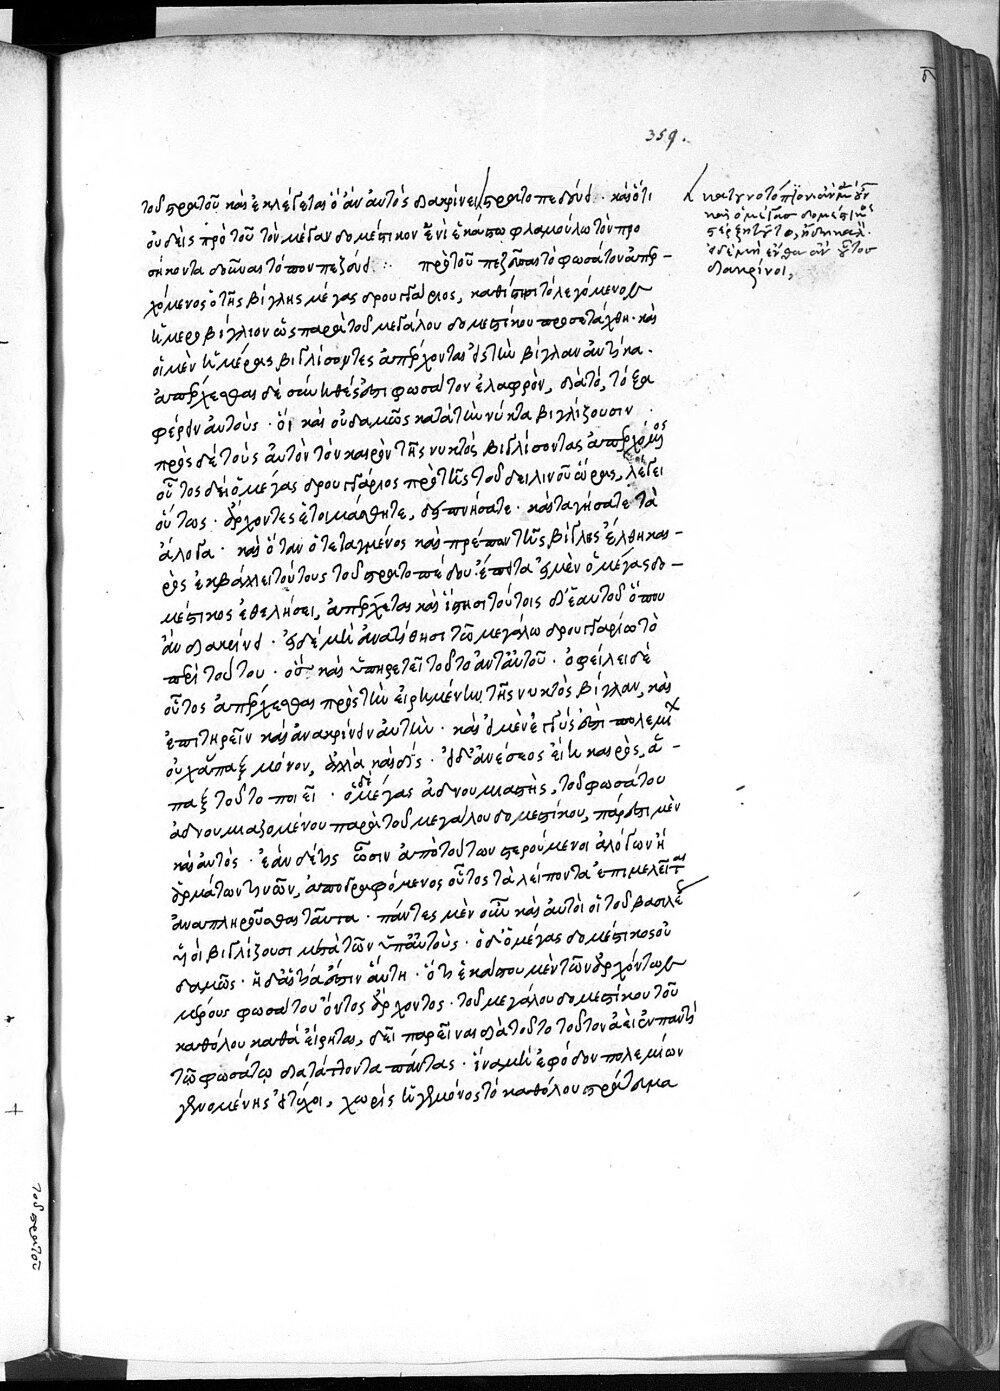 359.
τοῦ στρατοῦ καὶ ἐκλέγεται ὃ ἂν αὐτὸς διακρίνει στρατοπεδεύει. καὶ ὅτι
οὐδεὶς πρὸ τοῦ τὸν μέγαν δομέστικον ἕνὶ ἑκάστω φλαμούλω τὸν προ
σήκοντα δοῦναι τόπον πεζεύει. πρὸ τοῦ πεζεῦσαι τὸ φωσάτον ἀπερ-
χόμενος ὁ τῆς βίγλης μέγας δρουγγάριος, καθίστησι τὸ λεγόμενον
ἡμεροβίγλιον ὡς παρὰ τοῦ μεγάλου δομεστίκου προσετάχθη. καὶ
οἱ μὲν ἡμέρας βιγλίσοντες ἀπέρχονται εἰς τὴν βίγλαν αὐτίκα.
ἀπέρχεσθαι δὲ σύνηθές ἐστι φωσάτον ἐλαφρὸν, διὰ τὸ, τόξα
φέρειν αὐτούς. οἳ καὶ οὐδαμῶς κατὰ τὴν νύκτα βιγλίζουσιν.
πρὸς δὲ τοὺς αὐτὸν τὸν καιρὸν τῆς νυκτὸς βιγλίσοντας ἀπερχόμενος
οὗτος δὲ ὁ μέγας δρουγγάριος πρὸ τῆς τοῦ δειλινοῦ ὥρας, λέγει
οὕτως. ἄρχοντες ἑτοιμάσθητε, δειπνήσατε. καὶ ταγήσατε τὰ
ἄλογα. καὶ ὅταν ὁ τεταγμένος καὶ πρέπων τῆς βίγλης ἔλθη και-
ρὸς ἐκβάλλει τούτους τοῦ στρατοπέδου. ἔπειτα εἰ μὲν ὁ μέγας δο-
μέστικος ἐθελήσει, ἀπέρχεται καὶ ἵστησι τούτοις δι' ἑαυτοῦ ὅπου
ἂν διακρίνει. εἰ δὲ μὴ ἀνατίθησι τῶ μεγάλω δρουγγαρίω τὸ
περὶ τούτου. ὃς καὶ ὑπηρετεῖ τοῦτο ἀντ' αὐτοῦ. ὀφείλει δὲ
οὗτος ἀπέρχεσθαι πρὸς τὴν εἰρημένην τῆς νυκτὸς βίγλαν, καὶ
ἐπιτηρεῖν καὶ ἀνακρίνειν αὐτήν. καὶ εἰ μὲν ἐγγύς ἐστι πολεμίων
οὐχ ἅπαξ μόνον, ἀλλὰ καὶ δίς. εἰ δ' ἀνέσεως εἴη καιρὸς, ἅ-
παξ τοῦτο ποιεῖ. ὁ δὲ μέγας ἀδνουμιαστὴς, τοῦ φωσάτου
ἀδνουμιαζομένου παρὰ τοῦ μεγάλου δομεστίκου, πάρεστι μὲν
καὶ αὐτός. ἐὰν δέ τις ὦσιν ἀπὸ τούτων στερούμενοι ἀλόγων ἢ
ἁρμάτων τινῶν, ἀπογραφόμενος οὗτος τὰ λείποντα ἐπιμελεῖται
ἀναπληροῦσθαι ταῦτα. πάντες μὲν οὖν καὶ αὐτοὶ οἱ τοῦ βασιλέως
υἱοὶ βιγλίζουσι μετὰ τῶν ὑπ' αὐτούς. ὁ δὲ μέγας δομέστικος οὐ
δαμῶς. ἡ δ' αἰτία ἐστὶν αὕτη. ὅτι ἑκάστου μὲν τῶν ἀρχόντων
μέρους φωσάτου ὄντος ἄρχοντος. τοῦ μεγάλου δομεστίκου τοῦ
καθόλου καθὰ εἴρηται, δεῖ παρεῖναι διὰ τοῦτο τοῦτον ἀεὶ ἐν παντὶ
τῶ φωσάτω διατάττοντα πάντας. ἵνα μὴ ἐφόδου πολεμίων
γενομένης εἰ τύχοι, χωρὶς ἡγεμόνος τὸ καθόλου στράτευμα
κατὰ γοῦν τὸν τόπον ὃν ἂν
καὶ ὁ μέγας δομέστικος
ἔνθα ἂν οὗτος
διακρίνοι,
τοῦ στρατοῦ